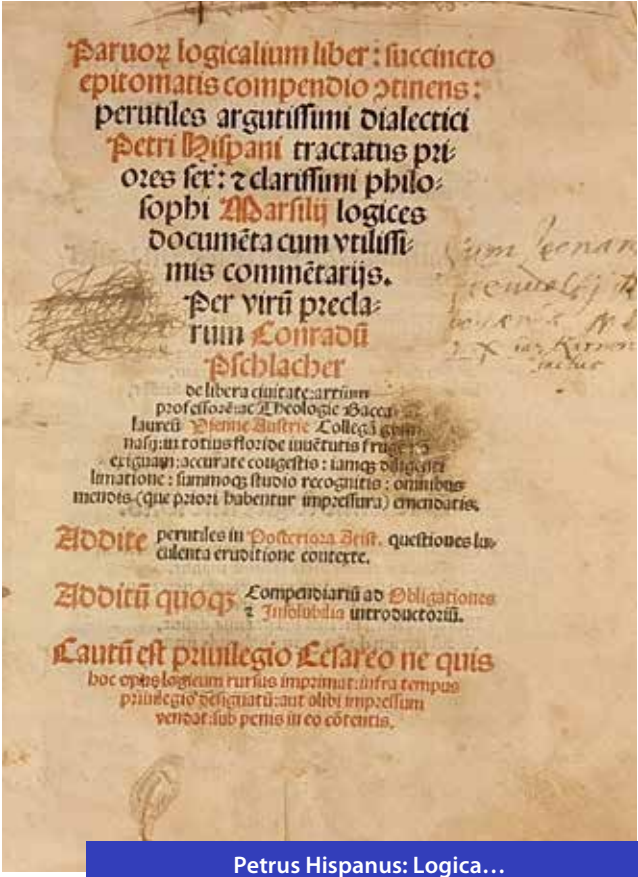 Paruoꝝ logicalium liber: succincto
epitomatis compendio ↄtinens:
perutiles argutissimi dialectici
Petri Hispani tractatus pri⸗
ores sex: ⁊ clarissimi philo⸗
sophi Marsilij logices
documēta cum vtilissi⸗
mis commētarijs.
Per virū precla⸗
rum Conradū
Pschlacher
de libera ciuitate: artium
professorē: ac Theologie Bacca⸗
laureū Vienne Austrie Collegā
nasij: in totius floride iuuētutis
exignam: accurate congestis: iamqꝫ diligenti
limatione: summoqꝫ studio recognitis: omnibus
mendis (que priori habentur impressura) emendatis.
Addite perutiles in Posteriora Arist. questiones lu⸗
culenta eruditione contexte.
Additū quoqꝫ Compendiariū ad Obligationes
⁊ Insolubilia introductoriū.
Cautū est priuilegio Cesareo ne quis
hoc opus logicum rursus imprimat: infra tempus
priuilegio designatū: aut alibi impressum
vendat: sub penis in eo cōtentis.
Petrus Hispanus: Logica…